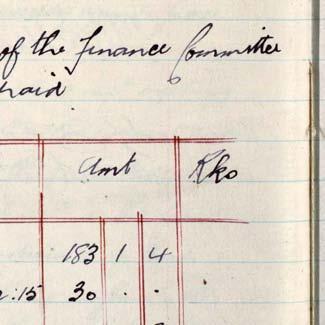 of the Finance Committee
paid
Amt Rks
183 1 4
:15 30 . .